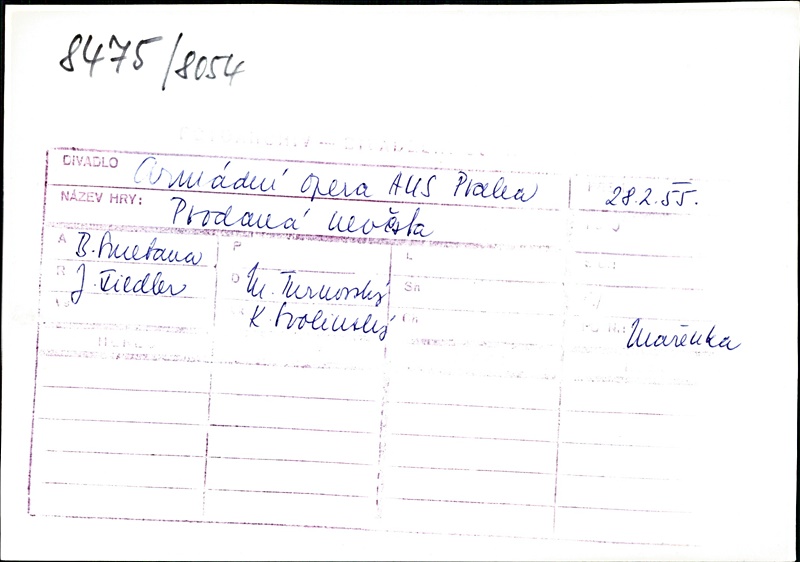 8475/8054
DIVADLO Armádní opera AUS Praha 28.2.55.
NÁZEV HRY: Prodaná nevěsta
A B. Smetana P L
R J. Fiedler D M. Turnovský Sn
K. Svolinský Mařenka